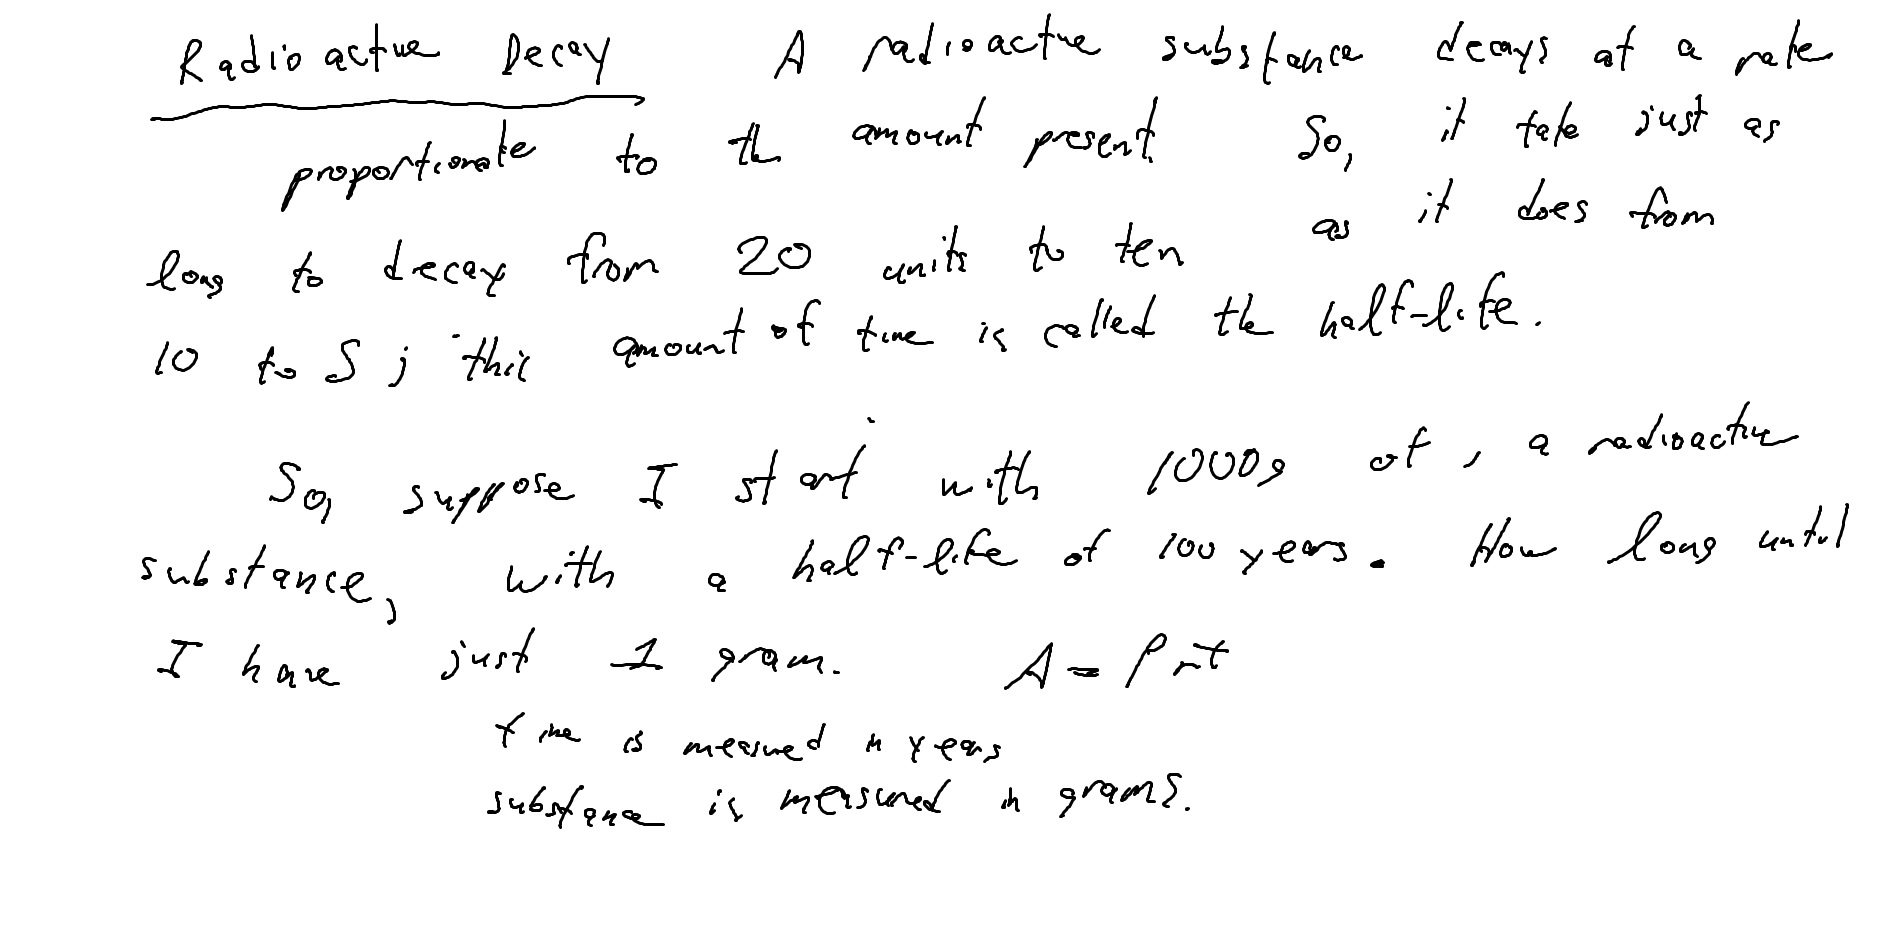 Radioactive Decay A radioactive substance decays at a rate
proportionate to the amount present. So, it take just as
long to decay from 20 units to ten as it does from
10 to 5; this amount of time is called the half-life.
So, suppose I start with 1000g of, a radioactive
substance, with a half-life of 100 years. How long until
I have just 1 gram. A = Pert
time is measured in years
substance is measured in grams.